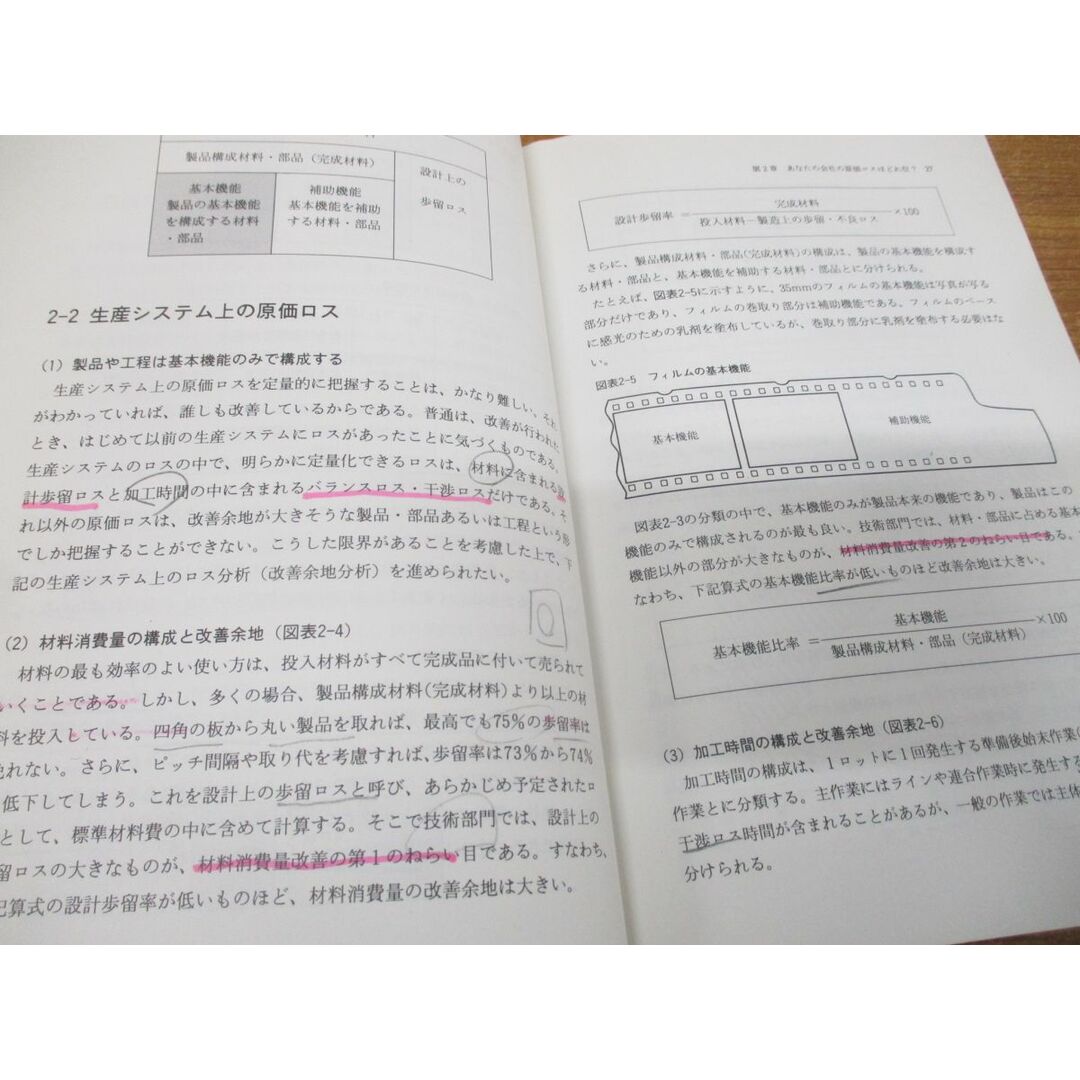 製品構成材料・部品（完成材料）
設計上の
歩留ロス
基本機能
製品の基本機能
を構成する材料
・部品
補助機能
基本機能を補助
する材料・部品
2-2 生産システム上の原価ロス
(1) 製品や工程は基本機能のみで構成する
生産システム上の原価ロスを定量的に把握することは、かなり難しい。それ
がわかっていれば、誰しも改善しているからである。普通は、改善が行われた
とき、はじめて以前の生産システムにロスがあったことに気づくものである。
生産システムのロスの中で、明らかに定量化できるロスは、材料に含まれる設
計歩留ロスと加工時間の中に含まれるバランスロス・干渉ロスだけである。そ
れ以外の原価ロスは、改善余地が大きそうな製品・部品あるいは工程という形
でしか把握することができない。こうした限界があることを考慮した上で、下
記の生産システム上のロス分析（改善余地分析）を進められたい。
(2) 材料消費量の構成と改善余地（図表2-4）
材料の最も効率のよい使い方は、投入材料がすべて完成品に付いて売られて
いくことである。しかし、多くの場合、製品構成材料（完成材料）より以上の材
料を投入している。四角の板から丸い製品を取れば、最高でも75％の歩留率は
免れない。さらに、ピッチ間隔や取り代を考慮すれば、歩留率は73％から74％
低下してしまう。これを設計上の歩留ロスと呼び、あらかじめ予定されたロ
として、標準材料費の中に含めて計算する。そこで技術部門では、設計上の
留ロスの大きなものが、材料消費量改善の第１のねらい目である。すなわち、
記算式の設計歩留率が低いものほど、材料消費量の改善余地は大きい。
第２章　あなたの会社の原価ロスはどれ位？　27
設計歩留率＝完成材料／投入材料－製造上の歩留・不良ロス×100
さらに、製品構成材料・部品（完成材料）の構成は、製品の基本機能を構成す
る材料・部品と、基本機能を補助する材料・部品とに分けられる。
たとえば、図表2-5に示すように、35mmのフィルムの基本機能は写真が写る
部分だけであり、フィルムの巻取り部分は補助機能である。フィルムのベース
に感光のための乳剤を塗布しているが、巻取り部分に乳剤を塗布する必要はな
い。
図表2-5　フィルムの基本機能
基本機能
補助機能
図表2-3の分類の中で、基本機能のみが製品本来の機能であり、製品はこの
機能のみで構成されるのが最も良い。技術部門では、材料・部品に占める基本
機能以外の部分が大きなものが、材料消費量改善の第２のねらい目である。
なわち、下記算式の基本機能比率が低いものほど改善余地は大きい。
基本機能比率＝基本機能／製品構成材料・部品（完成材料）×100
(3) 加工時間の構成と改善余地（図表2-6）
加工時間の構成は、１ロットに１回発生する準備後始末作業
作業とに分類する。主作業にはラインや連合作業時に発生する
干渉ロス時間が含まれることがあるが、一般の作業では主体
分けられる。